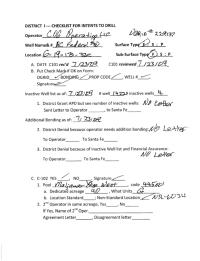 DISTRICT I — CHECKLIST FOR INTENTS TO DRILL
Operator COG Operating LLC OGRID # 229137
Well Name& # BC Federal Surface Type F S P
Location 6-19-32 Sub-Surface Type F S P
A. DATE C101 rec'd 7/23/09 C101 reviewed 7/23/09
B. Put Check Mark if OK on Form:
OGRID PROP CODE WELL #
Signature
Inactive Well list as of: 7/23/09 # well inactive wells 4
1. District Grant APD but see number of inactive wells: No Letter
Sent Letter to Operator to Santa Fe
Additional Bonding as of: 7/23/09
2. District Denial because operator needs addition bonding: No Letter
To Operator To Santa Fe
3. District Denial because of Inactive Well list and Financial Assurance:
No Letter
To Operator To Santa Fe
C. C-102 YES NO Signature
1. Pool Maljamar Yeso West code 44500
a. Dedicated acreage 40, What Units
b. Location Standard ; Non-Standard Location NSL-
2. 2nd Operator in same acreage, Yes No
If Yes, Name of 2nd Oper
Agreement Letter Disagreement letter